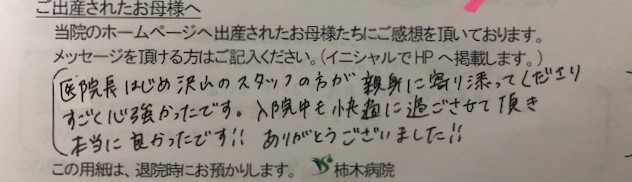 ご出産されたお母様へ
当院のホームページへ出産されたお母様たちにご感想を頂いております。
メッセージを頂ける方はご記入ください。(イニシャルでHPへ掲載します。)
医院長はじめ沢山のスタッフの方が親身に寄り添ってくださり
すごく心強かったです。入院中も快適に過ごさせて頂き
本当に良かったです!! ありがとうございました!!
この用紙は、退院時にお預かりします。 柿木病院